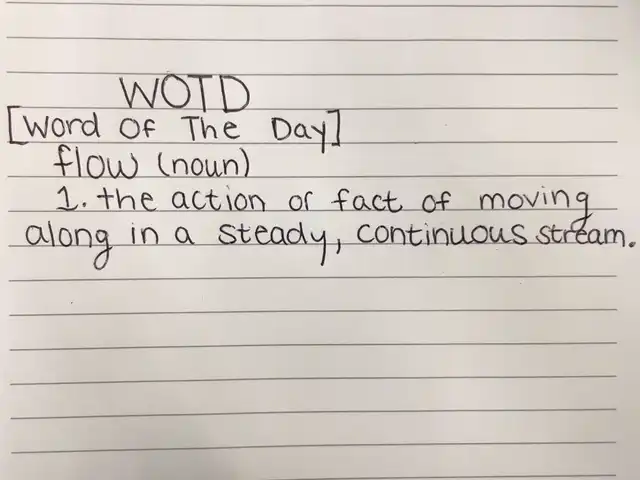 WOTD
[Word Of The Day]
flow (noun)
1. the action or fact of moving
along in a steady, continuous stream.